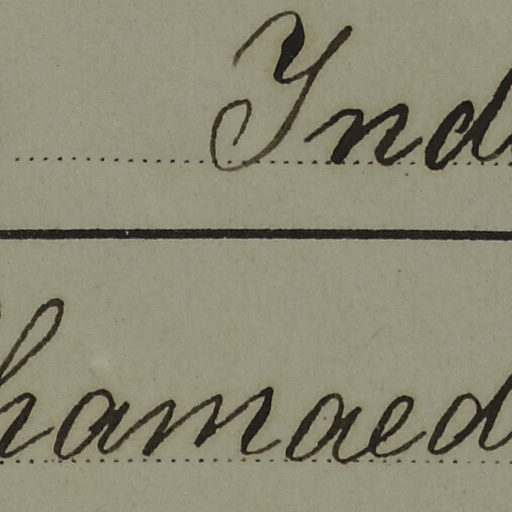 Ind
hamaed